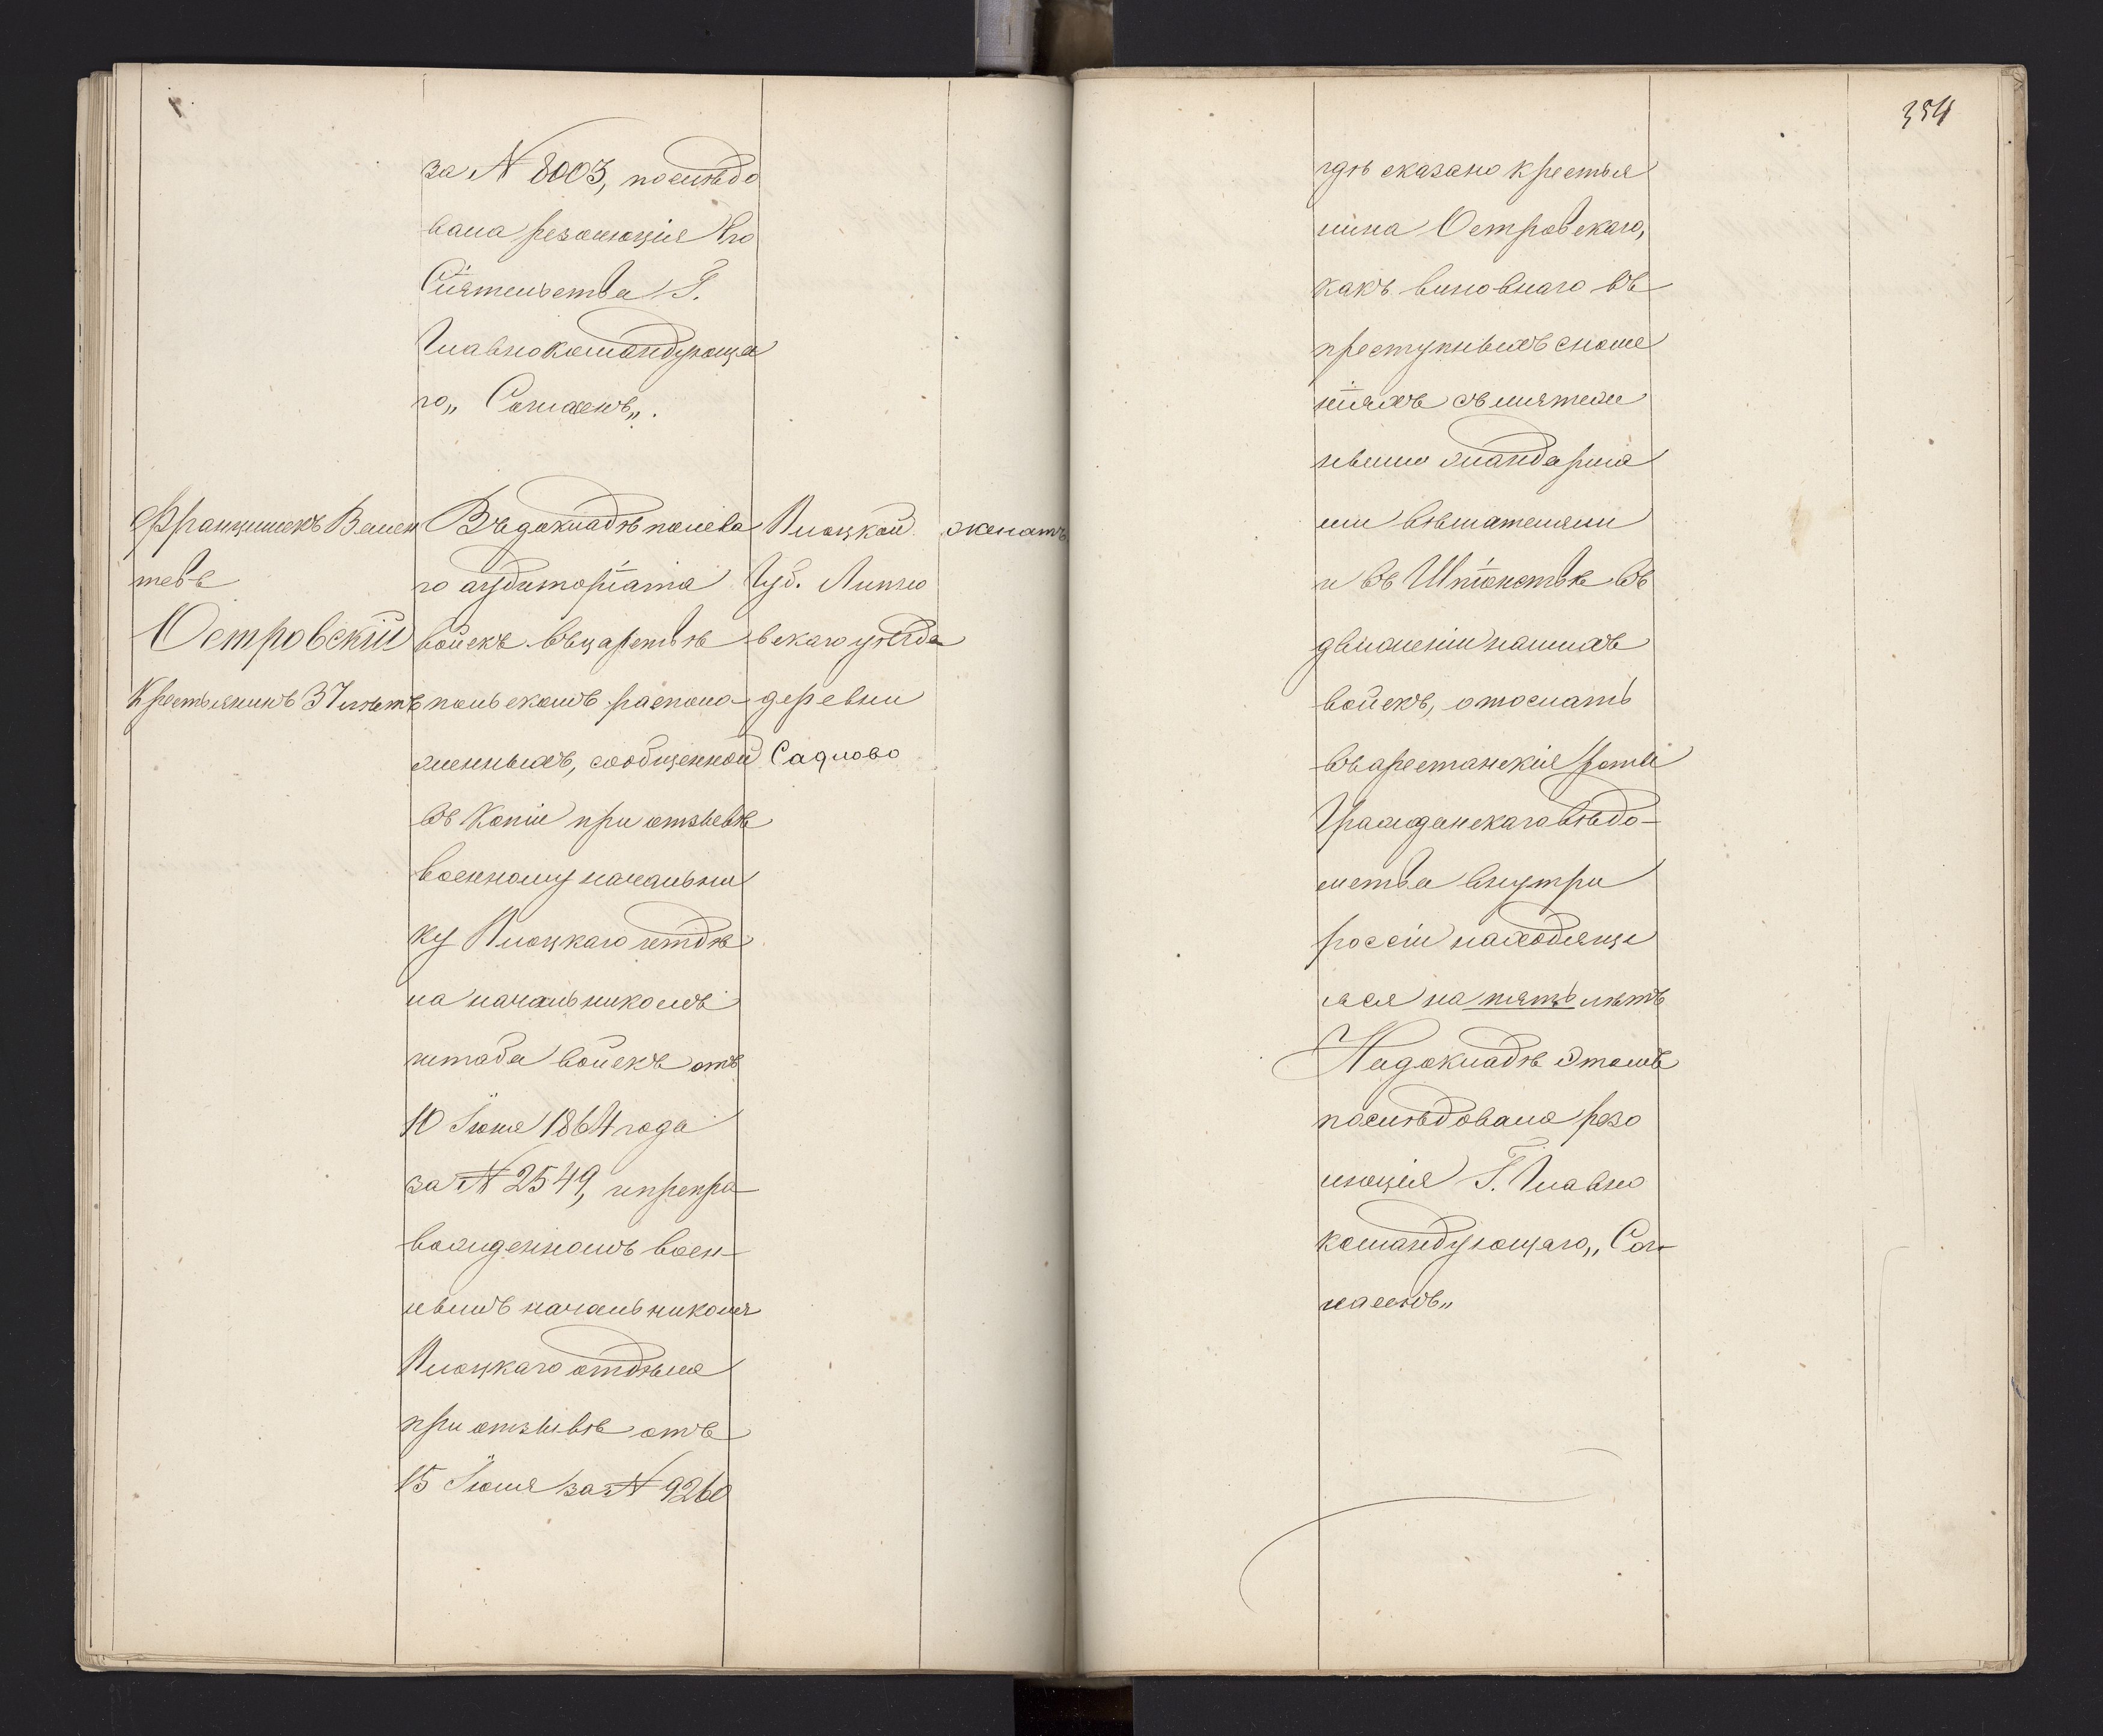 за № 8003, послѣдо
вала резолюція Его
Сіятельства Г.
Главнокомандующа
го,, Согласенъ,,.
Францишекъ Вален
тевъ
Островскій
Крестьянинъ 37 лѣтъ
Въ докладѣ полева
го аудиторіата
войскъ въ царствѣ
польскомъ располо-
женныхъ, сообщенной
въ копіи при отзывѣ
военному начальни
ку Плоцкаго отдѣ
ла начальникомъ
штаба войскъ отъ
10 Іюня 1864 года
за № 2549, и препро-
вожденномъ воен-
нымъ начальникомъ
Плоцкаго отдѣла
при отзывѣ отъ
15 Іюля за № 9260
Плоцкой
Губ. Липно
вскаго уѣзда
деревни
Садлово
женатъ
354
гдѣ сказано крестья
нина Островскаго,
какъ виновнаго въ
преступныхъ сноше
ніяхъ съ мятеж
ными жандарма
ми вѣшателями
и въ Шпіонствѣ въ
движеніи нашихъ
войскъ, отослать
въ арестанскія роты
Гражданскаго вѣдо-
мства внутри
россіи находящі
яся на пять лѣтъ
На докладѣ Этомъ
послѣдовала резо
люція Г. Главно
командующаго,, Сог-
ласенъ,,